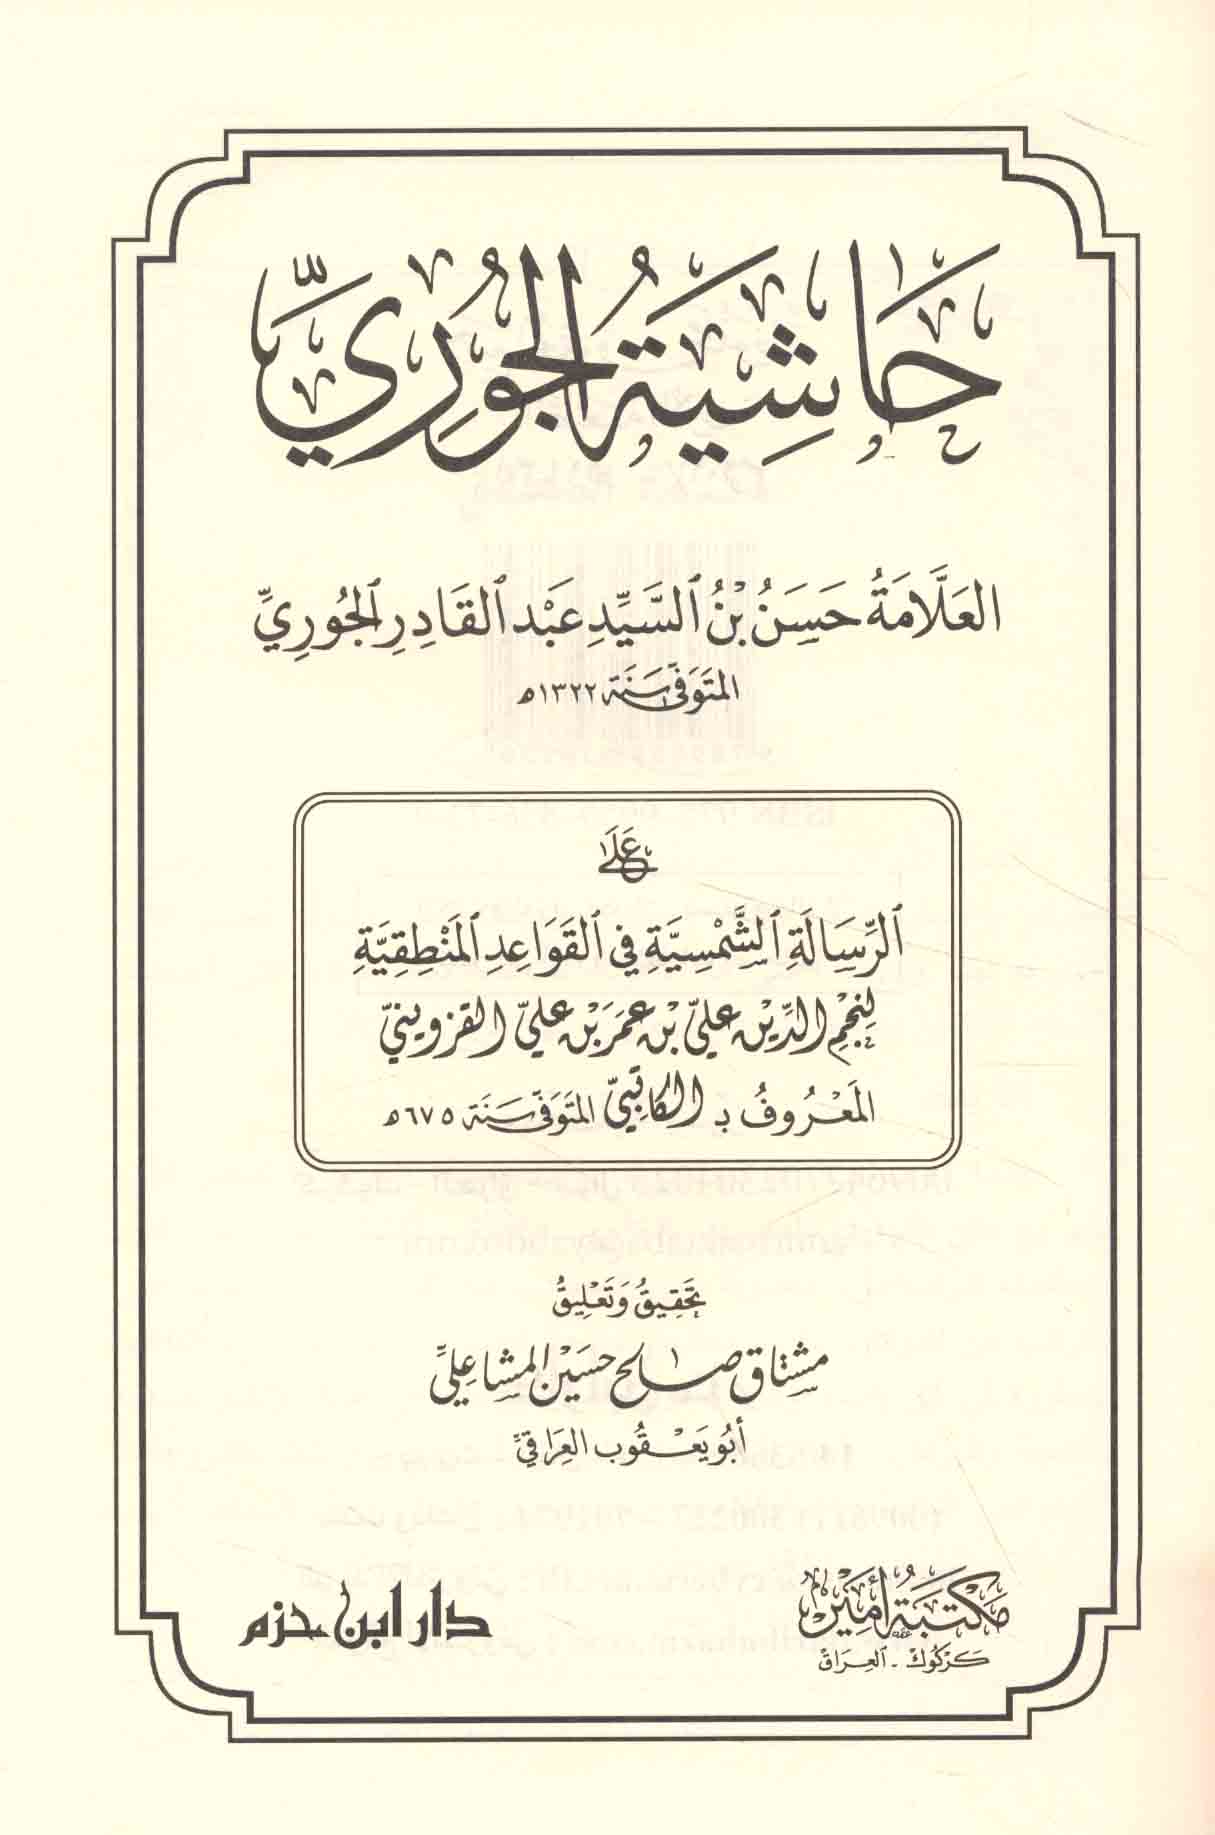 حَاشِيَةُ الجُورِيِّ
العَلَّامَةُ حَسَنُ بْنُ السَّيِّدِ عَبْدِ القَادِرِ الجُورِيِّ
المتَوَفَّى سَنَة ١٣٢٢ه
عَلَى
الرِّسَالَةِ الشَّمْسِيَّةِ فِي القَوَاعِدِ المَنْطِقِيَّةِ
لِنَجْمِ الدِّيْنِ عَلِيِّ بْنِ عُمَرَ بْنِ عَلِيٍّ القَزْوِينِيِّ
المَعْرُوفُ بِـ الكَاتِبِيِّ المتَوَفَّى سَنَة ٦٧٥ه
تَحْقِيقُ وَتَعْلِيقُ
مشتاق صالح حسين المشاعليّ
أبُو يَعْقُوب العِرَاقيِّ
مَكتَبَةُ أمِير
كَركُوك - العِرَاق
دار ابن حزم